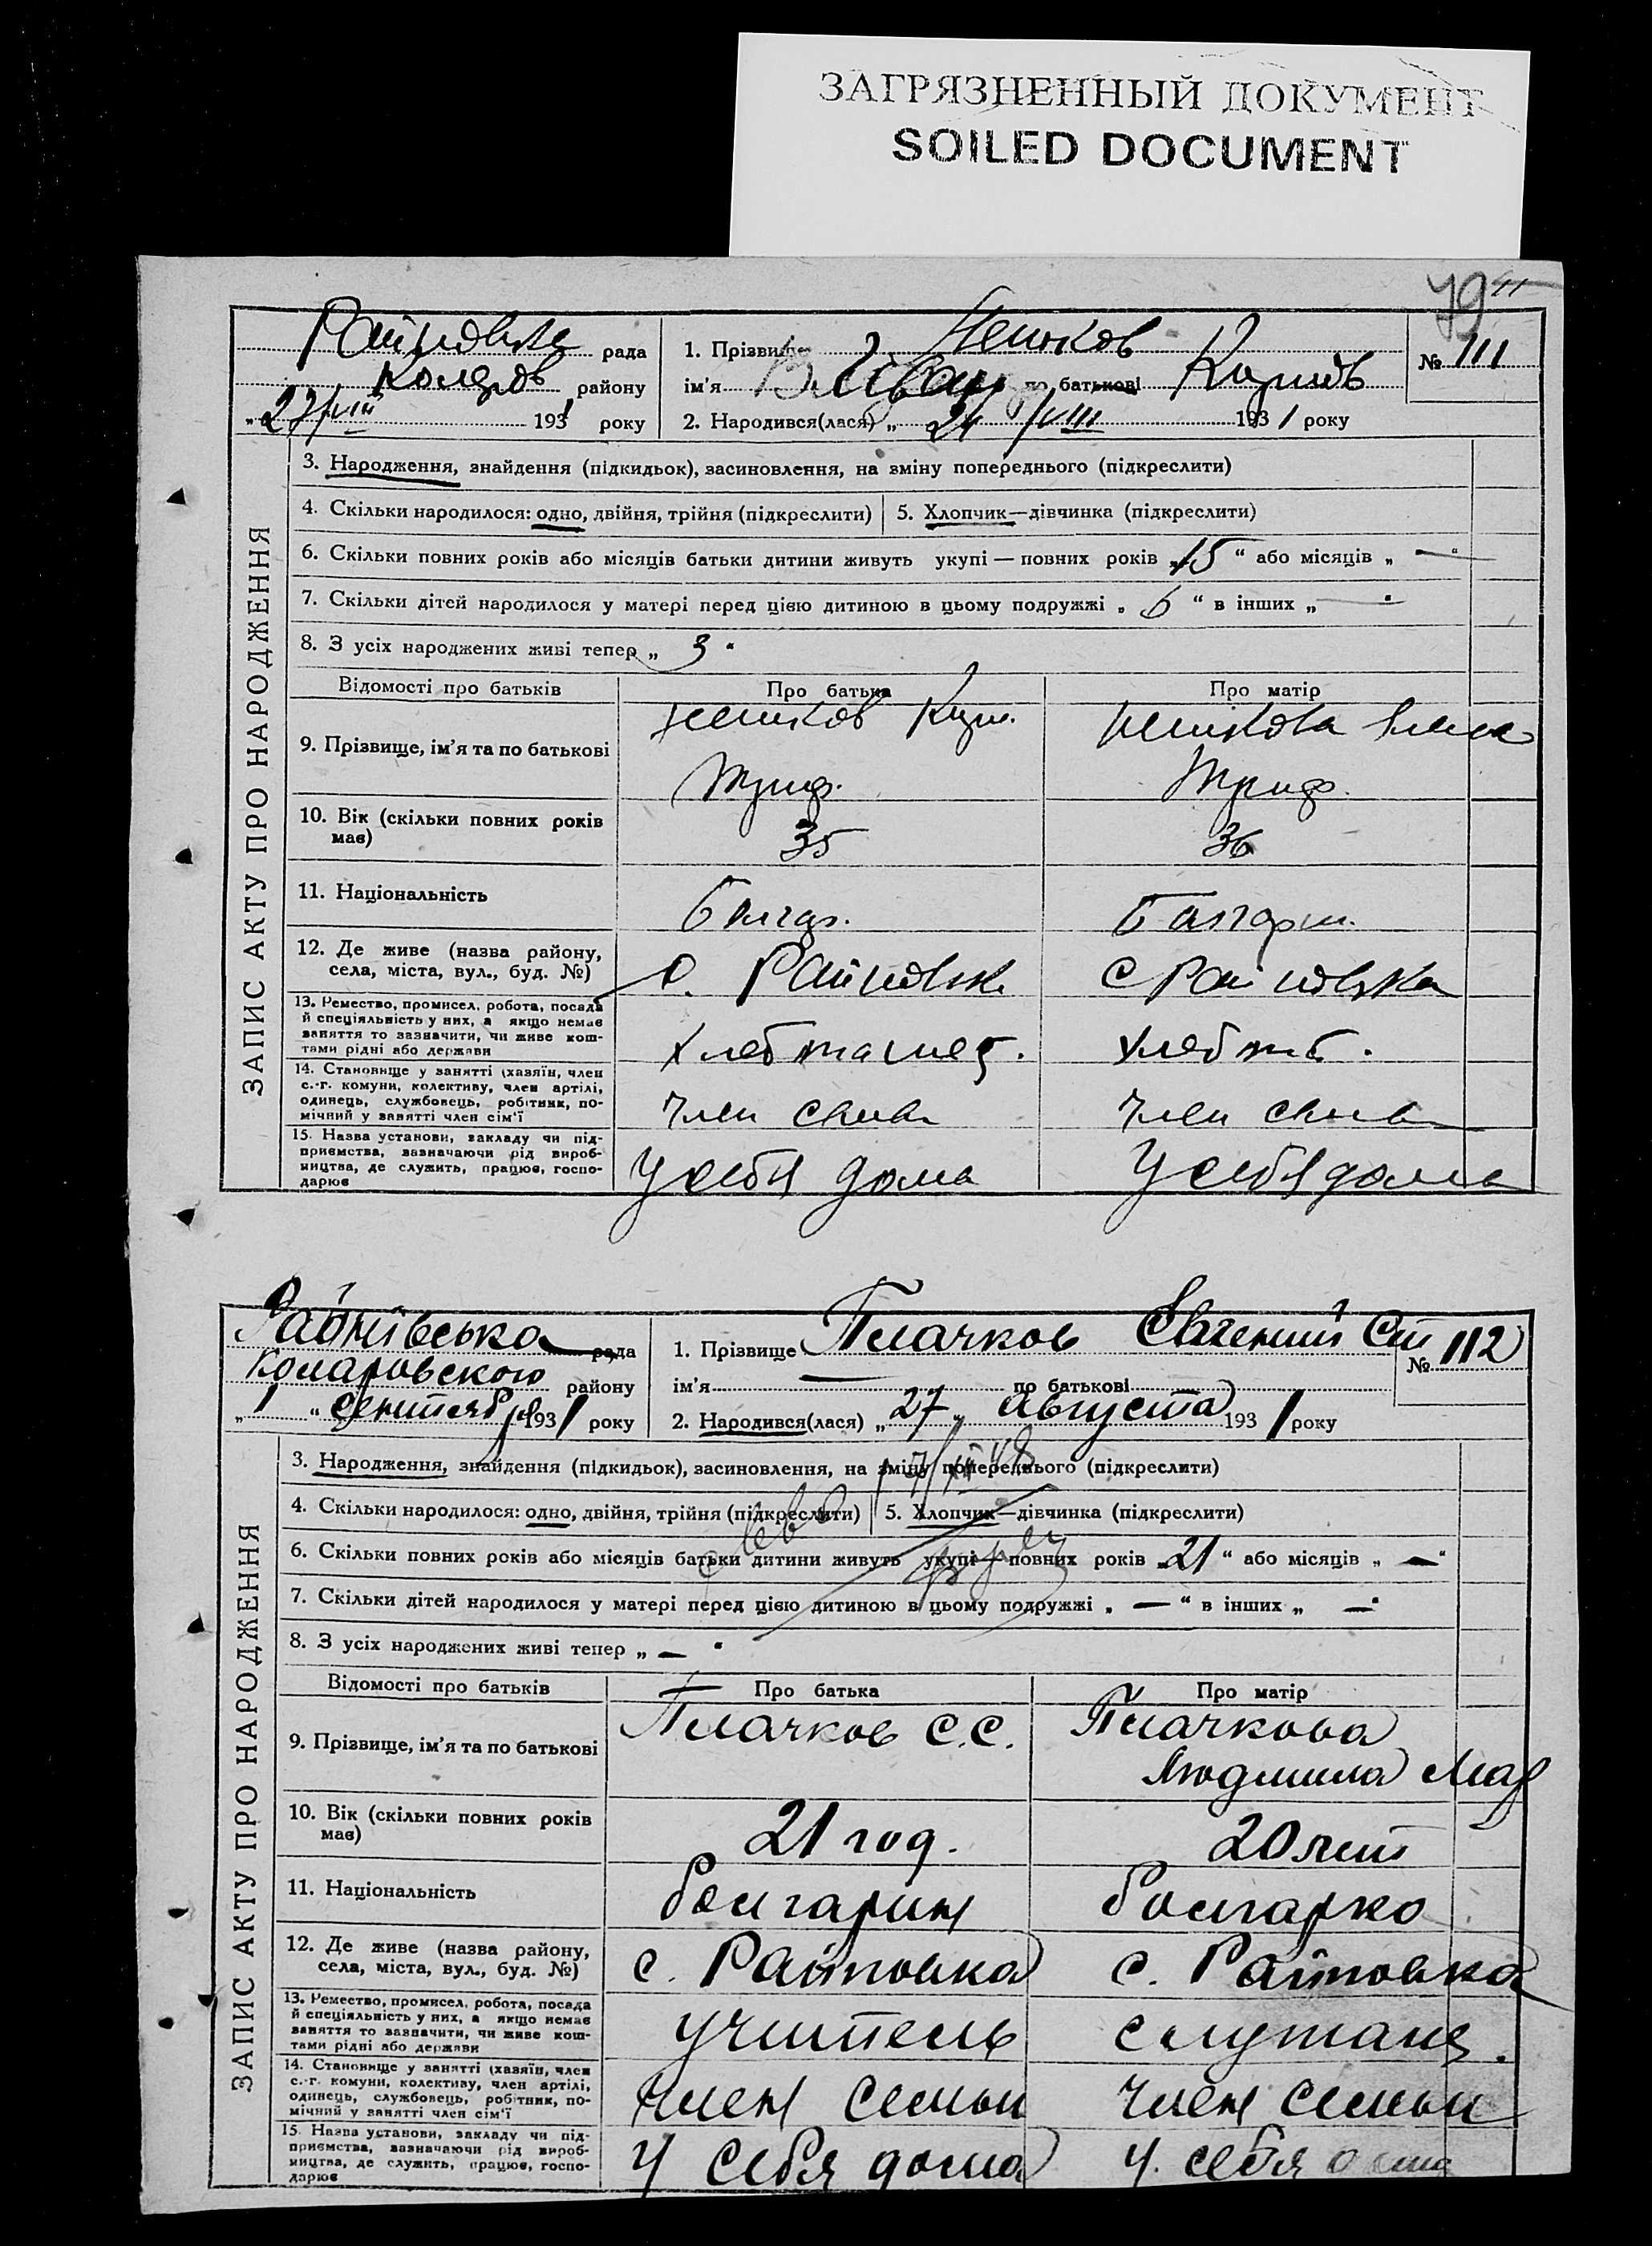 ЗАГРЯЗНЕННЫЙ ДОКУМЕНТ
SOILED DOCUMENT
79
ЗАПИС АКТУ ПРО НАРОДЖЕННЯ
рада
району
27/VIII 1931 року
1. Прізвище
ім'я Иван по батькові
№ 111
2. Народився(лася) „ /VIII 1931 року
3. Народження, знайдення (підкидьок), засиновлення, на зміну попереднього (підкреслити)
4. Скільки народилося: одно, двійня, трійня (підкреслити)
5. Хлопчик—дівчинка (підкреслити)
6. Скільки повних років або місяців батьки дитини живуть укупі — повних років „15" або місяців „—"
7. Скільки дітей народилося у матері перед цією дитиною в цьому подружжі „6" в інших „—"
8. З усіх народжених живі тепер „3"
Відомості про батьків
Про батька
Про матір
9. Прізвище, ім'я та по батькові
Триф.
Триф.
10. Вік (скільки повних років має)
35
36
11. Національність
Болгар.
Болгарк.
12. Де живе (назва району, села, міста, вул., буд. №)
с.
с
13. Ремество, промисел, робота, посада й спеціяльність у них, а якщо немає заняття то зазначити, чи живе коштами рідні або держави
14. Становище у занятті (хазяїн, член с.-г. комуни, колективу, член артілі, одинець, службовець, робітник, помічний у занятті член сім'ї
член
член
15. Назва установи, закладу чи підприємства, зазначаючи рід виробництва, де служить, працює, господарює
У себя дома
У себя дома
ЗАПИС АКТУ ПРО НАРОДЖЕННЯ
рада
Комаровского району
„1" сентября 1931 року
1. Прізвище Плачков Евгений Ст
№ 112
ім'я — по батькові
2. Народився(лася) „27" августа 1931 року
3. Народження, знайдення (підкидьок), засиновлення, на зміну попереднього (підкреслити)
4. Скільки народилося: одно, двійня, трійня (підкреслити)
5. Хлопчик—дівчинка (підкреслити)
6. Скільки повних років або місяців батьки дитини живуть укупі — повних років 21" або місяців „—"
7. Скільки дітей народилося у матері перед цією дитиною в цьому подружжі „—" в інших „—"
8. З усіх народжених живі тепер „—"
Відомості про батьків
Про батька
Про матір
9. Прізвище, ім'я та по батькові
Плачков С.С.
Плачкова
Людмила Мар
10. Вік (скільки повних років має)
21 год.
20 лет
11. Національність
болгарин
болгарка
12. Де живе (назва району, села, міста, вул., буд. №)
с. Райновка
с. Райновка
13. Ремество, промисел, робота, посада й спеціяльність у них, а якщо немає заняття то зазначити, чи живе коштами рідні або держави
учитель
14. Становище у занятті (хазяїн, член с.-г. комуни, колективу, член артілі, одинець, службовець, робітник, помічний у занятті член сім'ї
член семьи
член семьи
15. Назва установи, закладу чи підприємства, зазначаючи рід виробництва, де служить, працює, господарює
У себя дома
У себя